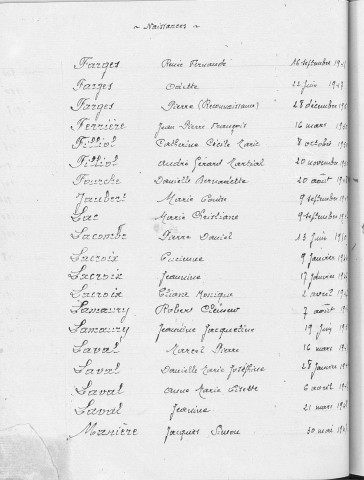 ~ Naissances ~
Farges Renée Fernande 16 septembre 19
Farges Odette 22 juin 19
Farges Pierre (Reconnaissance) 28 décembre 19
Ferrière Jean Pierre François 16 mars 19
Filliol Catherine Cécile Marie 8 octobre 19
Filliol André Gérard Martial 20 novembre 19
Fourche Danielle Bernadette 20 août 19
Jaubert Marie 9 septembre
Lac Marie Christiane 9 septembre
Lacombe Pierre Daniel 13 juin 19
Lacroix 9 janvier 19
Lacroix Jeannine 17 février 19
Lacroix Eliane Monique 2 avril 19
Lamaury Robert Clément 7 août 19
Lamaury Jeannine Jacqueline 19 juin 19
Laval Marcel Pierre 16 mars 19
Laval Danielle Marie Joséphine 28 janvier 19
Laval Anne Marie 6 avril 19
Laval Jeanine 21 mars 19
Manière Jacques Simon 30 mai 19